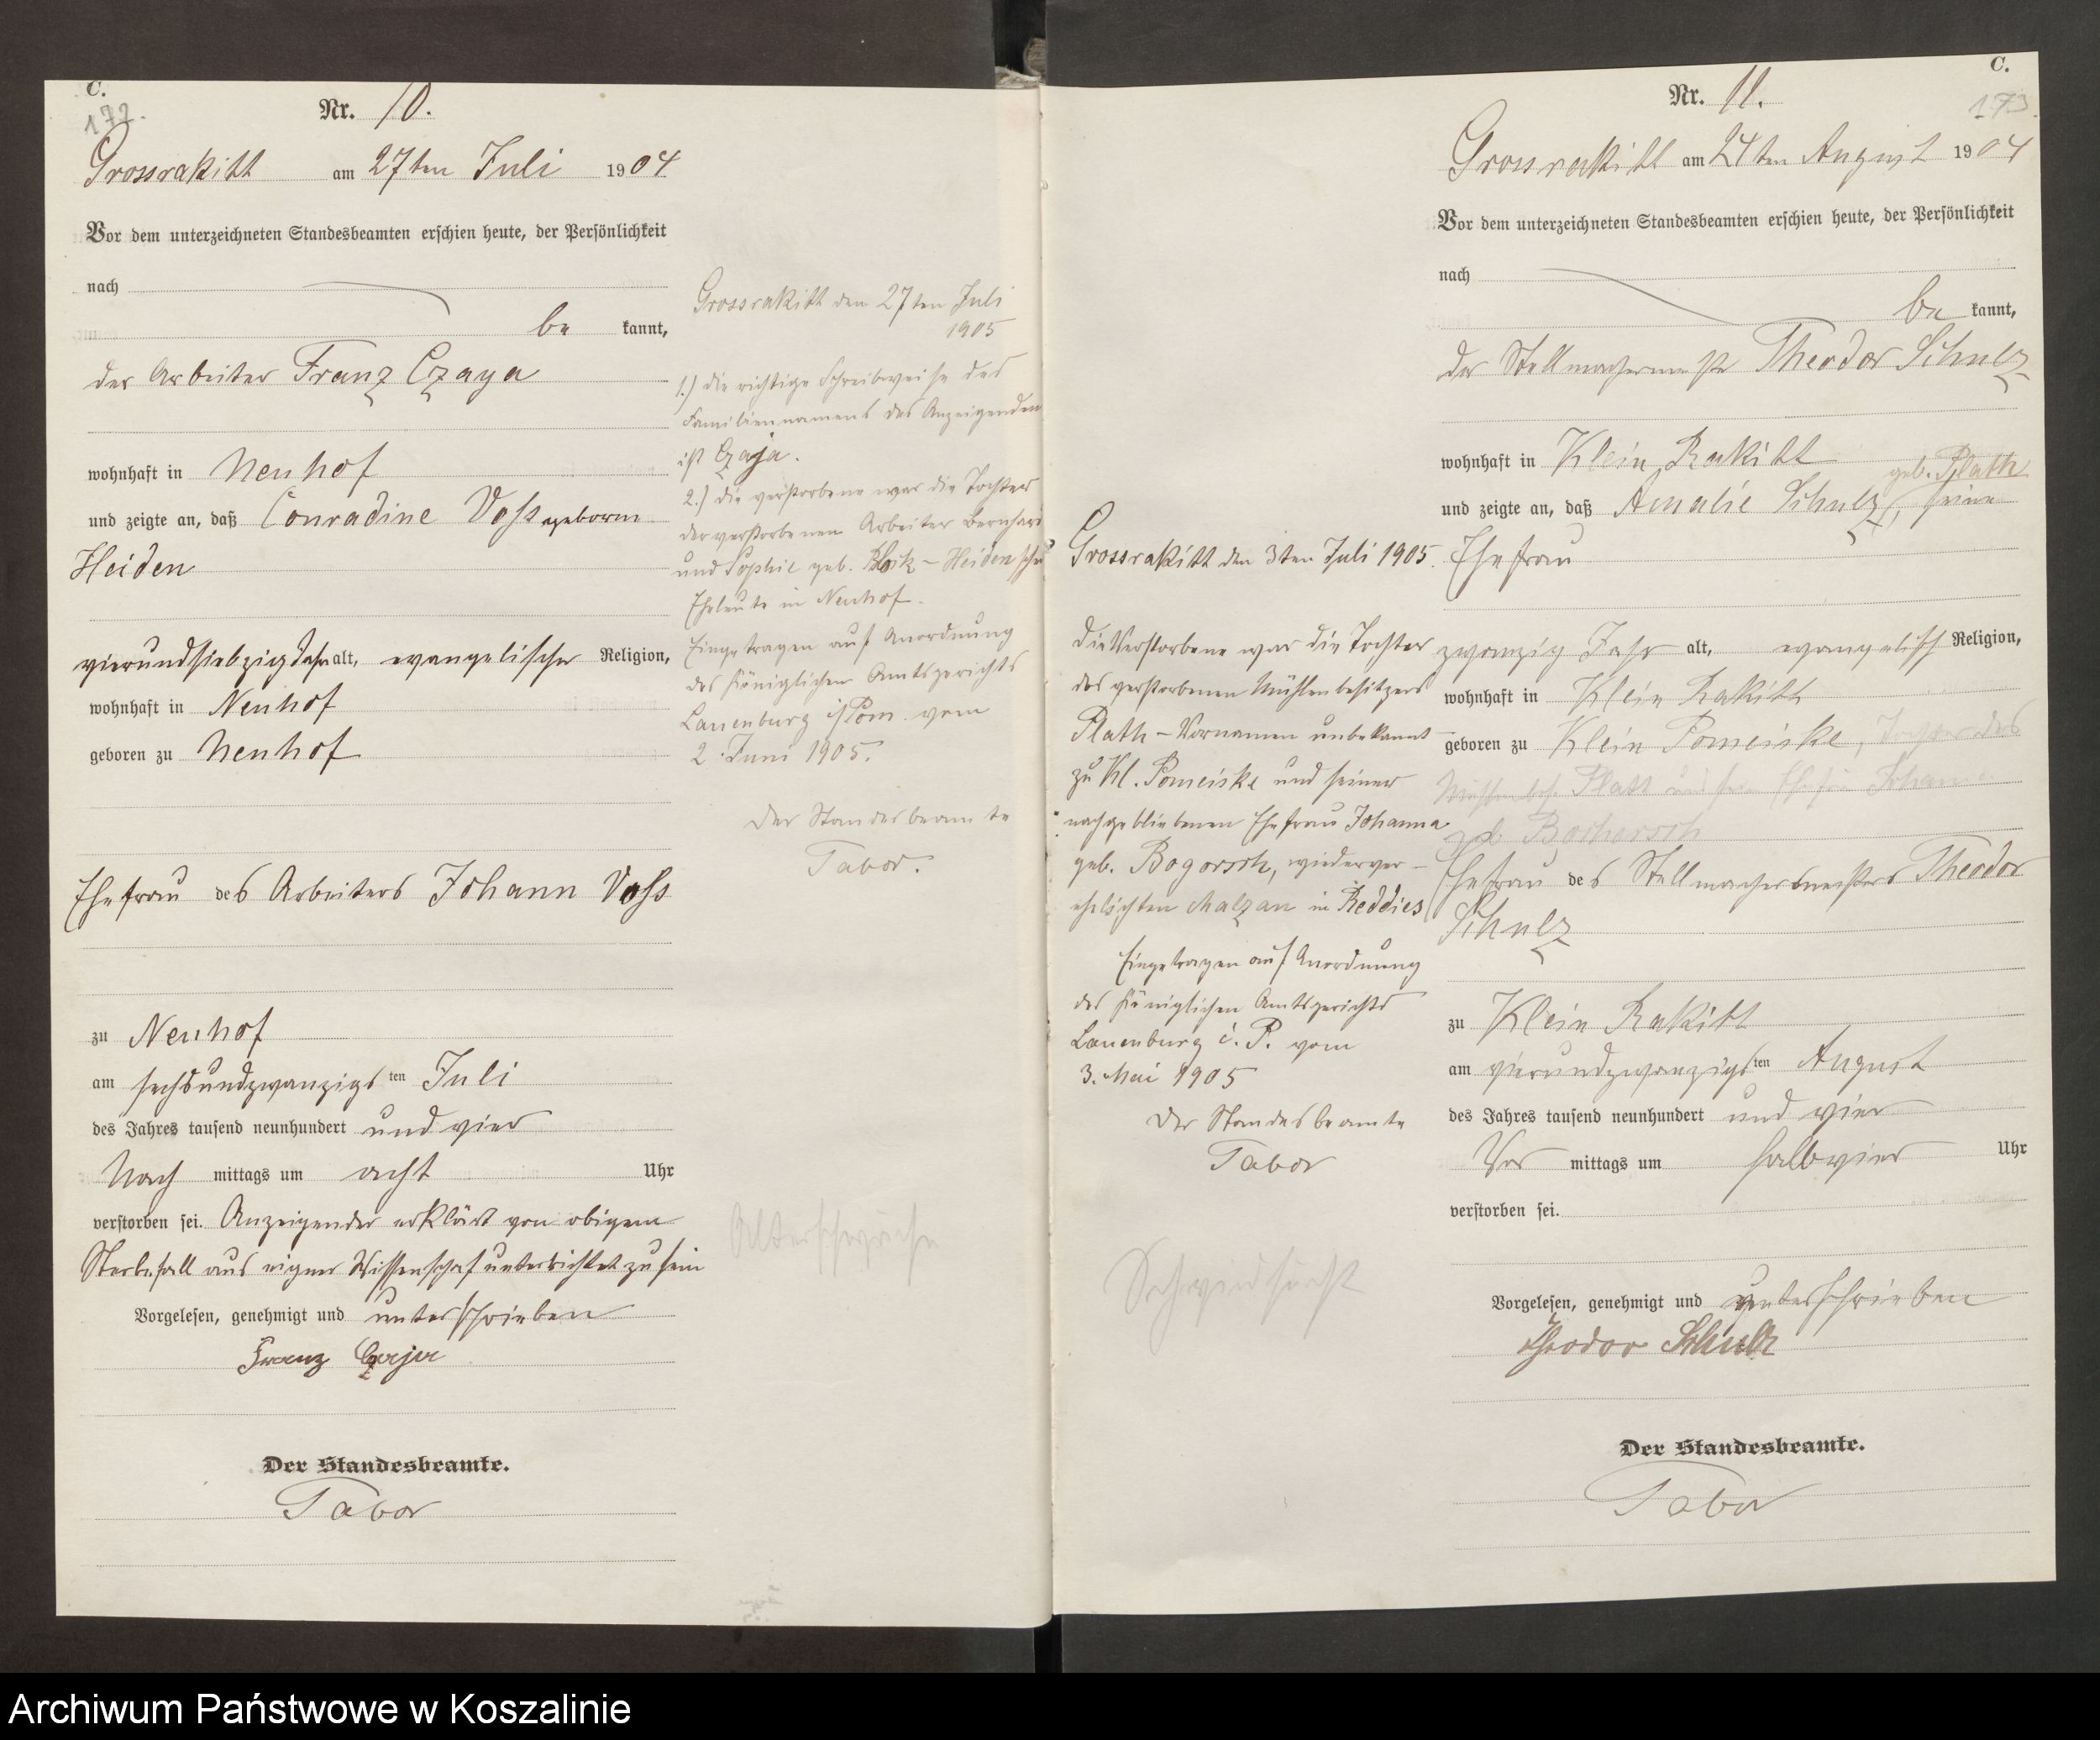 C.
172.
Nr. 10.
Grossrakitt am 27ten Juli 1904
Vor dem unterzeichneten Standesbeamten erschien heute, der Persönlichkeit
nach
be kannt,
der Arbeiter Franz Czaya
wohnhaft in Neuhof
und zeigte an, daß Conradine Voss geboren
Heiden
vierundsiebzig Jahr alt, evangelischer Religion,
wohnhaft in Neuhof
geboren zu Neuhof
Ehefrau des Arbeiters Johann Voss
zu Neuhof
am sechsundzwanzigs ten Juli
des Jahres tausend neunhundert und vier
Nach mittags um acht Uhr
verstorben sei. Anzeigender erklärt von obigem
Sterbefall aus eigner Wissenschaf unterrichtet zu sein
Vorgelesen, genehmigt und unterschrieben
Franz Czaja
Der Standesbeamte.
Tabor
Grossrakitt den 27ten Juli
1905
1.) die richtige Schreibweise des
Familiennamens des Anzeigenden
ist Czaja.
2.) die verstorbene war die Tochter
der verstorbenen Arbeiter Bernhard
und Sophie geb. - Heiden
Eheleute in Neuhof.
Eingetragen auf Anordnung
des Königlichen Amtsgerichts
Lauenburg i/Pom. vom
2. Juni 1905.
Der Standesbeamte
Tabor.
Altersschwäche
C.
173.
Nr. 11.
Grossrakitt am 24ten August 1904
Vor dem unterzeichneten Standesbeamten erschien heute, der Persönlichkeit
nach
be kannt,
der Stellmachermeister Theodor Schulz
wohnhaft in Klein Rakitt
geb. Plath
und zeigte an, daß Amalie Schulz, seine
Ehefrau
zwanzig Jahr alt, evangelisch Religion,
wohnhaft in Klein Rakitt
geboren zu Klein Pomeiske, Tochter des
Plath Johanna
geb.
Ehefrau des Stellmachermeisters Theodor
Schulz
zu Klein Rakitt
am vierundzwanzigs ten August
des Jahres tausend neunhundert und vier
Vor mittags um halbvier Uhr
verstorben sei.
Vorgelesen, genehmigt und unterschrieben
Theodor Schulz
Der Standesbeamte.
Tabor
Grossrakitt den 3ten Juli 1905.
Die Verstorbene war die Tochter
des verstorbenen Mühlenbesitzers
Plath - Vornamen unbekannt -
zu Kl. Pomeiske und seiner
nachgebliebenen Ehefrau Johanna
geb. Bogorsch, wiederver-
ehelichten Malzan in Reddies
Eingetragen auf Anordnung
des Königlichen Amtsgerichts
Lauenburg i. P. vom
3. Mai 1905
Der Standesbeamte
Tabor
Schwindsucht
Archiwum Państwowe w Koszalinie